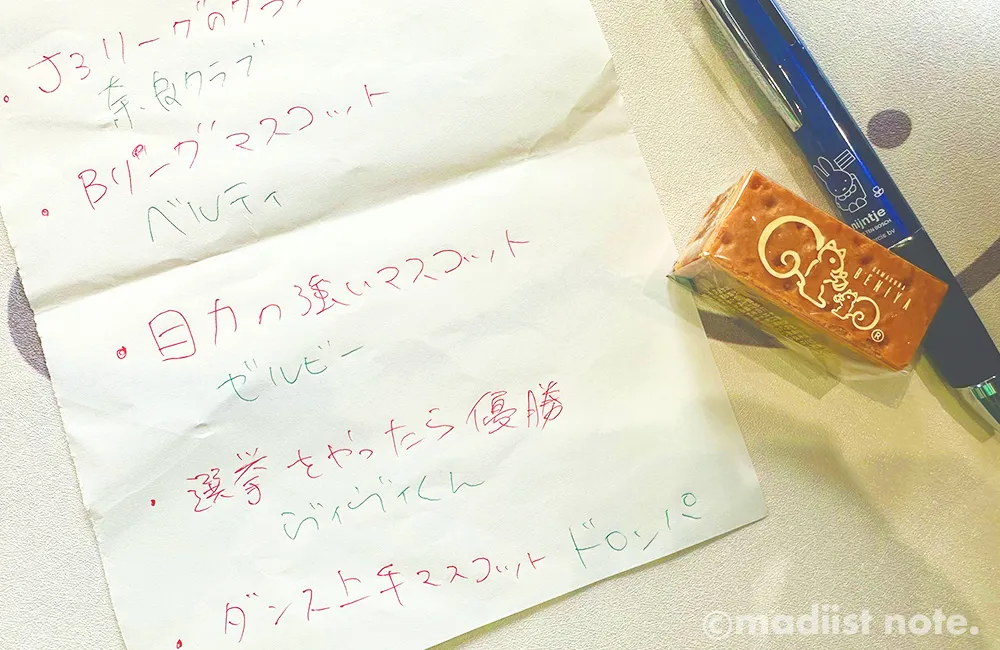 ・J3リーグのクラブ
奈良クラブ
・Bリーグマスコット
ベルティ
・目力の強いマスコット
ゼルビー
・選挙をやったら優勝
ヴィヴィくん
・ダンス上手マスコット ドロンパ
nijntje
KAMAKURA
BENIYA
®
©madiist note.